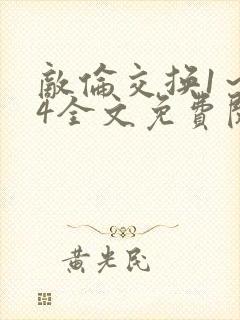 敵倫交換1～
4全文免費閱
黃光民